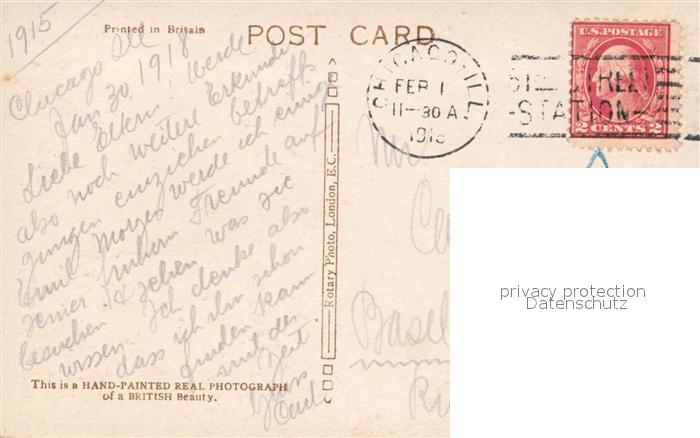 1915
Printed in Britain
POST CARD
Chicago Ill
Jan 30, 1918
Liebe Eltern. Werde
also noch weitere Erkundi
gungen einziehen betreffs
Emil. Morgen werde ich einige
seiner frühern Freunde auf
besuchen & sehen was sie
wissen. Ich denke also
dass ich ihn schon
finden kann
mit der
Zeit
Gruss
Carl
This is a HAND-PAINTED REAL PHOTOGRAPH
of a BRITISH Beauty.
Rotary Photo, London, E.C.
CHICAGO, ILL.
FEB 1
11-30 A.
1918
STREET
STATION
U.S. POSTAGE
2 CENTS 2
Mr
Ca
Basel
privacy protection
Datenschutz